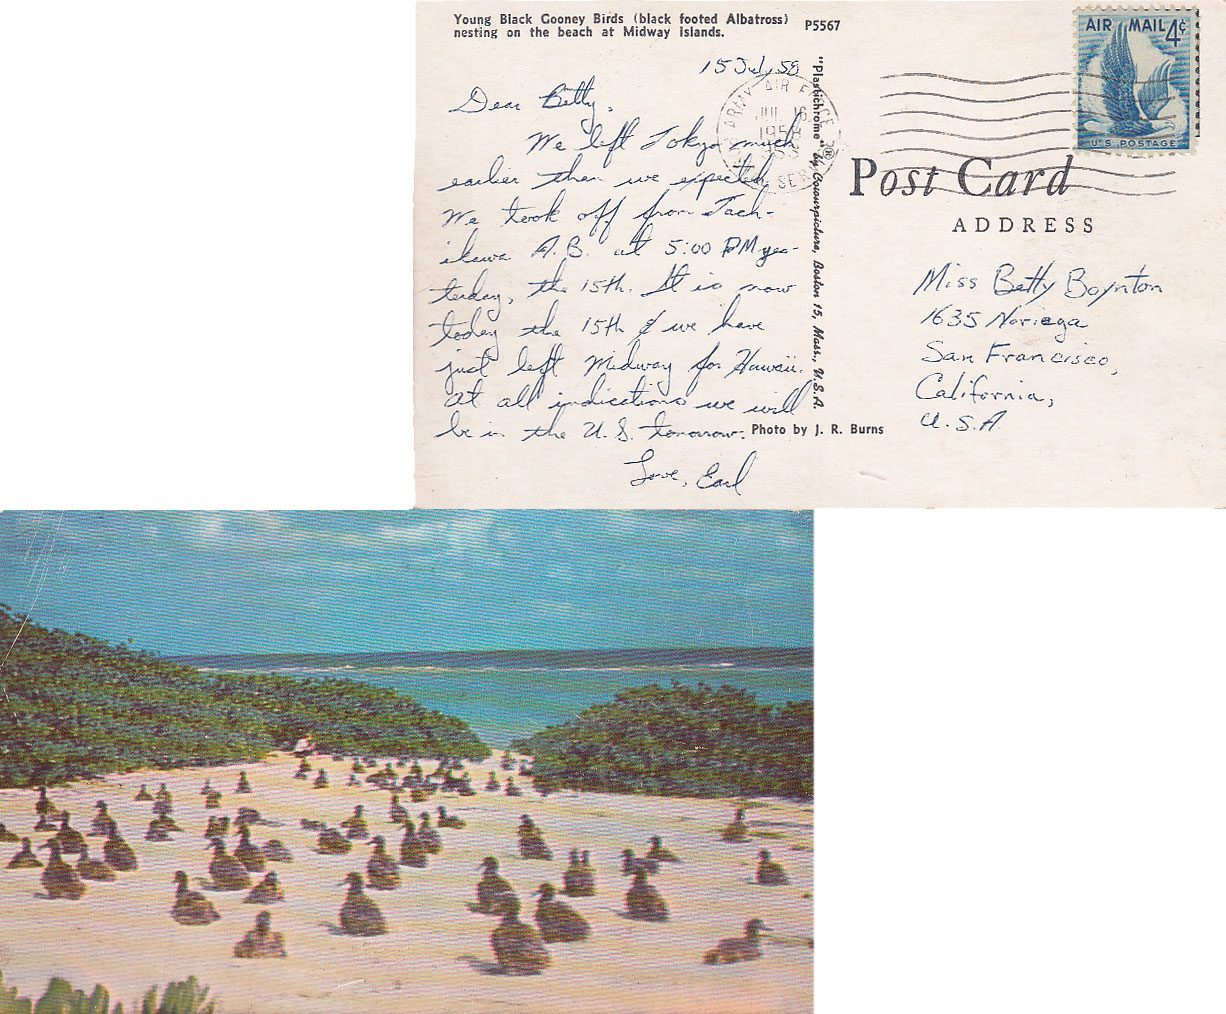 Young Black Gooney Birds (black footed Albatross)
nesting on the beach at Midway Islands.
P5567
15 July 58
Dear Betty,
We left Tokyo much
earlier than we expected.
We took off from Tach-
ikawa A.B. at 5:00 PM yes-
terday, the 15th. It is now
today the 15th & we have
just left Midway for Hawaii.
At all indications we will
be in the U.S. tomorrow.
Love, Earl
Photo by J. R. Burns
"Plastichrome" ® by Colourpicture, Boston 15, Mass., U.S.A.
ARMY AIR FORCE
JUL 16
1958
SERV
AIR MAIL 4¢
U.S. POSTAGE
Post Card
ADDRESS
Miss Betty Boynton
1635 Noriega
San Francisco,
California,
U.S.A